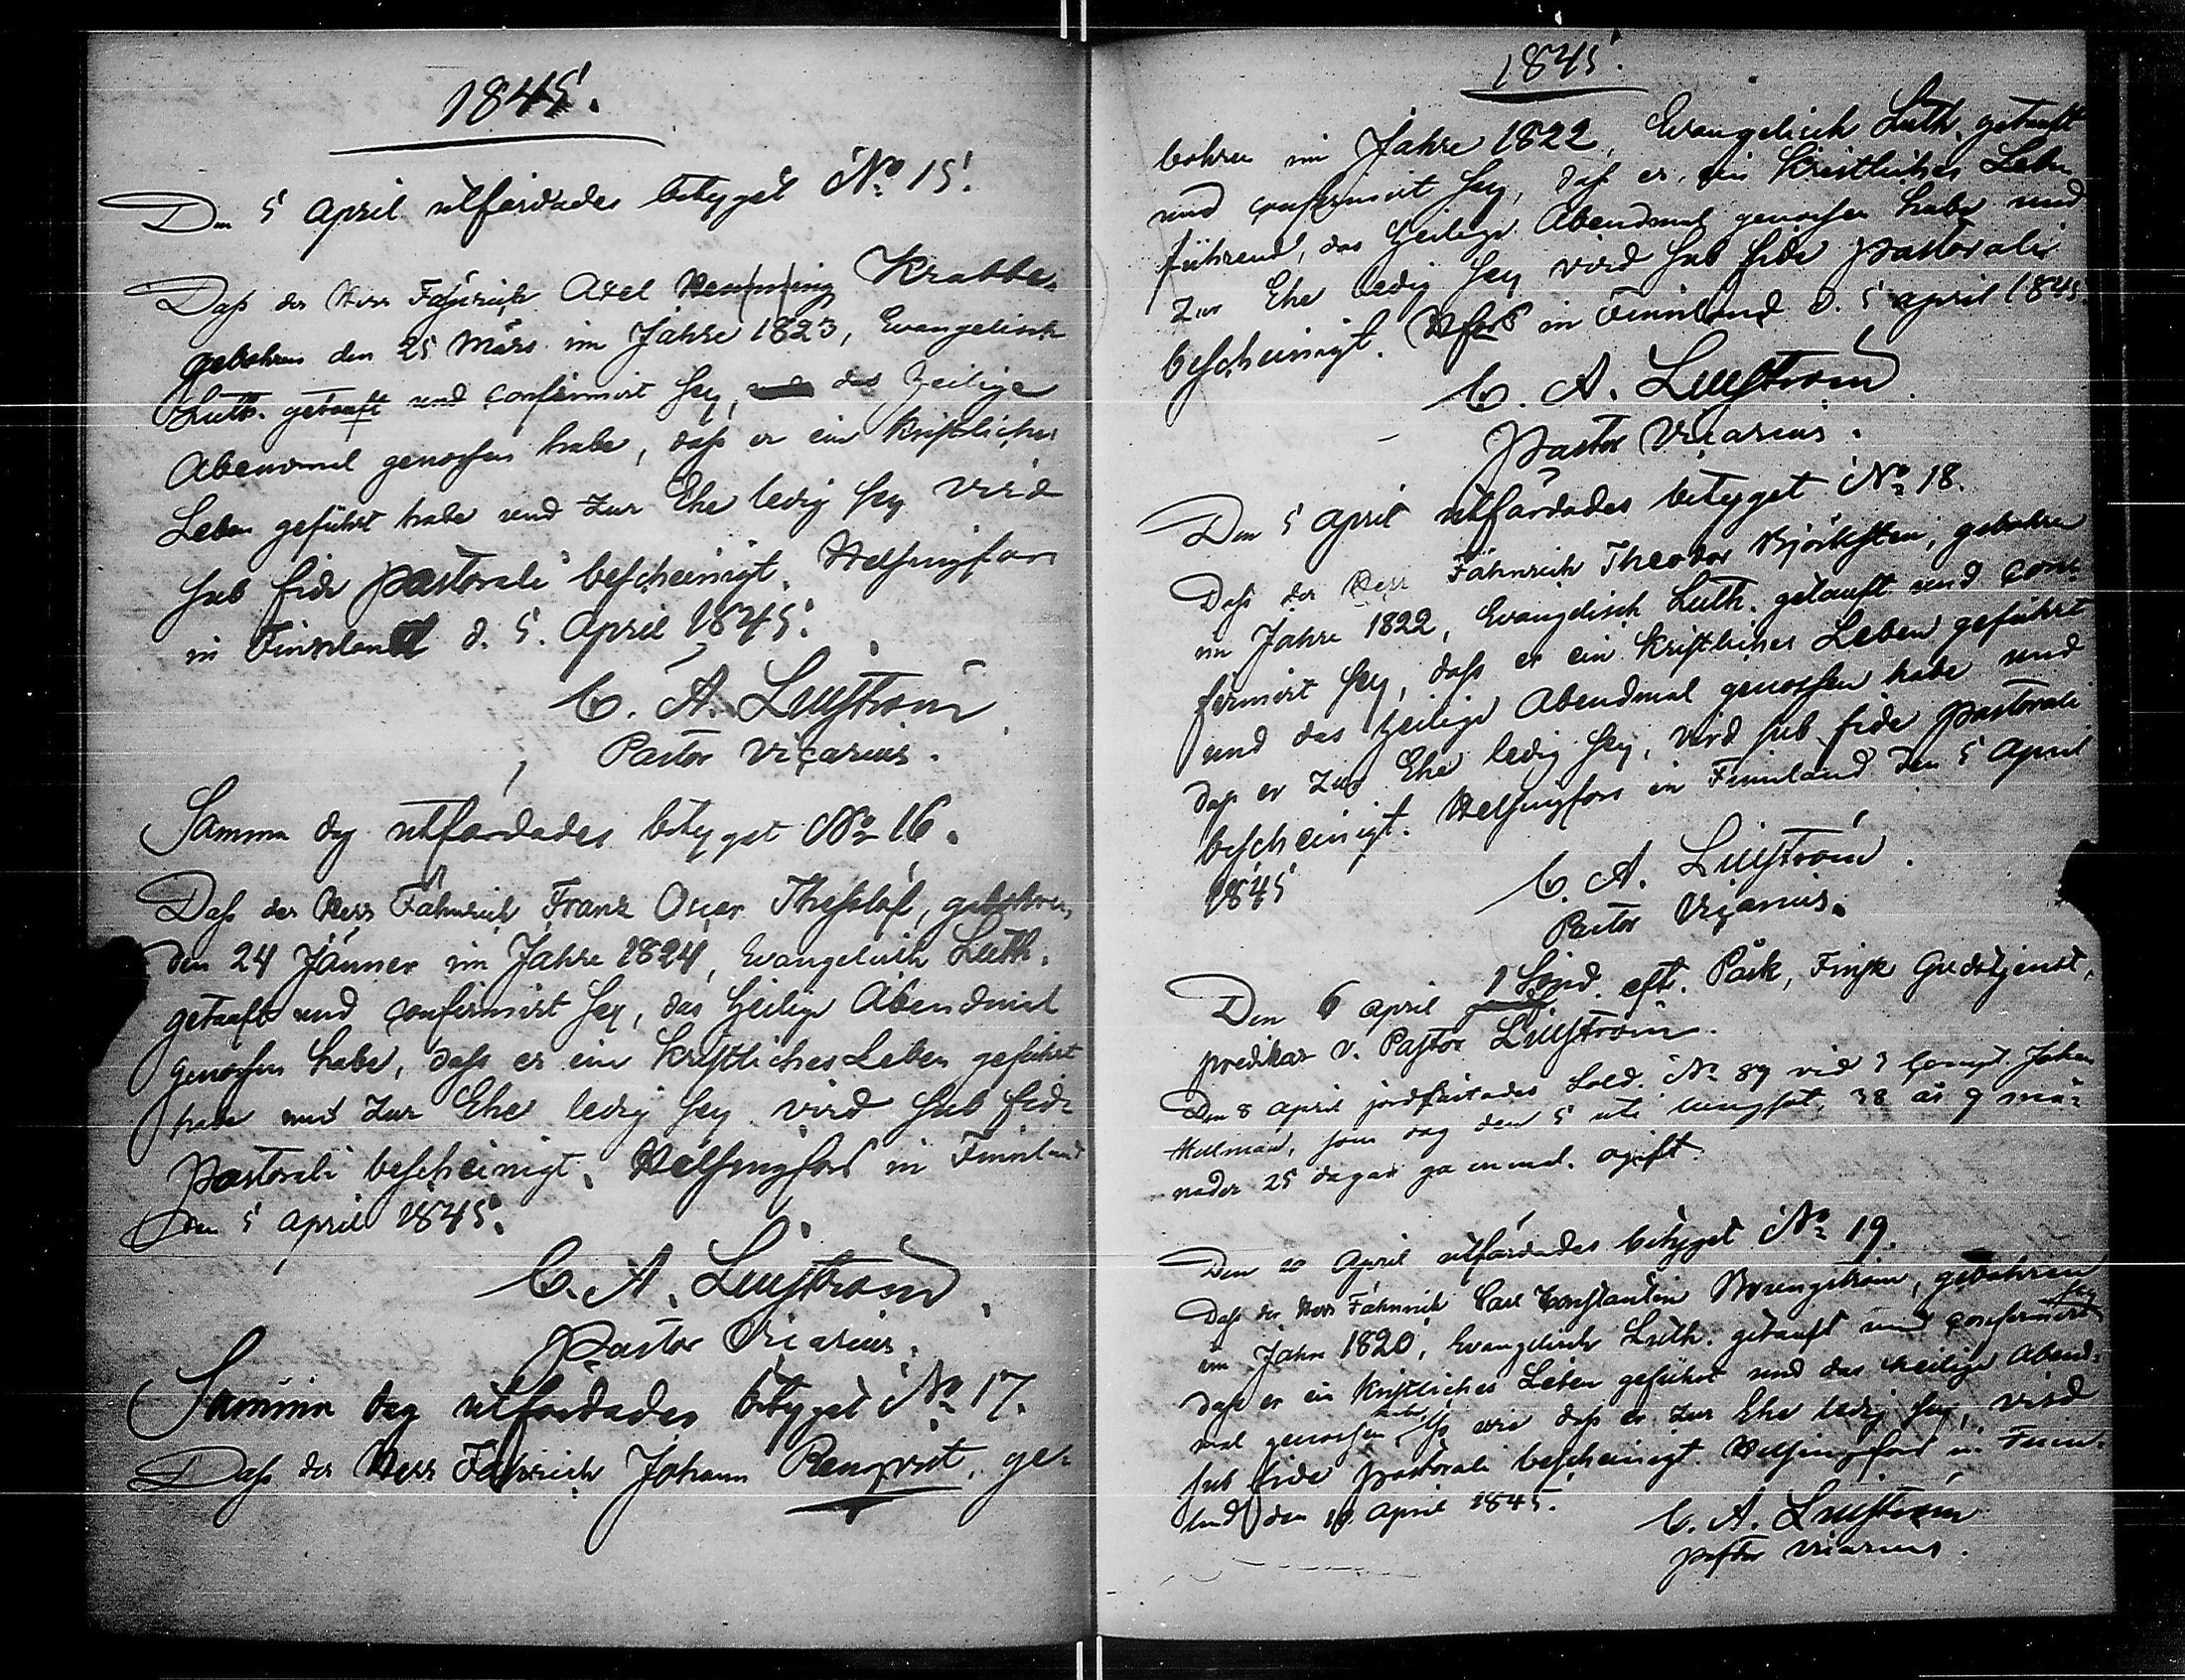 1845.
Den 5 April utfärdades betyget No 15.
Dass der Herr Fähnrich Axel Henning Krabbe,
gebohren den 25 März im Jahre 1823, Evangelisch
Luth. getauft und confirmirt sey, das Heilige
Abendmal genossen habe, dass er ein kristliches
Leben geführt habe und zur Ehe ledig sey wird
sub fide pastorali bescheinigt. Helsingfors
in Finnland d. 5. April 1845.
C. A. Liljström
Pastor Vicarius.
Samma dag utfärdades betyget No 16.
Dass der Herr Fähnrich Franz Oscar Thesslöf, gebohren
den 24 Jänner im Jahre 1824, Evangelisch Luth.
getauft und confirmirt sey, das Heilige Abendmal
genossen habe, dass er ein kristliches Leben geführt
habe und zur Ehe ledig sey wird sub fide
pastorali bescheinigt. Helsingfors in Finnland
den 5 April 1845.
C. A. Liljström
Pastor Vicarius.
Samma dag utfärdades betyget No 17.
Dass der Herr Fähnrich Johann Renqvist, ge-
1845.
bohren im Jahre 1822, Evangelisch Luth. getauft
und confirmirt sey, dass er, ein kristliches Leben
führend, das Heilige Abendmal genossen habe und
zur Ehe ledig sey wird sub fide pastorali
bescheinigt. Hfors in Finnland d. 5 April 1845.
C. A. Liljström
Pastor Vicarius.
Den 5 April utfärdades betyget No 18.
Dass der Herr Fähnrich Theodor Björksten, gebohren
im Jahre 1822, Evangelisch Luth. getauft und con-
firmirt sey, dass er ein kristliches Leben geführt
und das Heilige Abendmal genossen habe und
dass er zur Ehe ledig sey, wird sub fide pastorali
bescheinigt. Helsingfors in Finnland den 5 April
1845
C. A. Liljström.
Pastor Vicarius.
Den 6 April 1 Sönd. eft. Påsk, Finsk Gudstjenst,
predikar v. Pastor Liljström.
Den 8 April jordfästades Sold. No 89 vid 3 Comp. Johan
Hellman, som dog den 5 uti lungsot, 38 år 9 må-
nader 25 dagar gammal. ogift.
Den 10 April utfärdades betyget No 19.
Dass der Herr Fähnrich Carl Constantin, gebohren
im Jahre 1820, Evangelisch Luth. getauft und confirmirt sey
dass er ein kristliches Leben geführt und das Heilige Abend-
mal genossen habe, so wie dass er zur Ehe ledig sey, wird
sub fide pastorali bescheinigt. Helsingfors in Finn-
land den 10 April 1845.
C. A. Liljström
Pastor Vicarius.